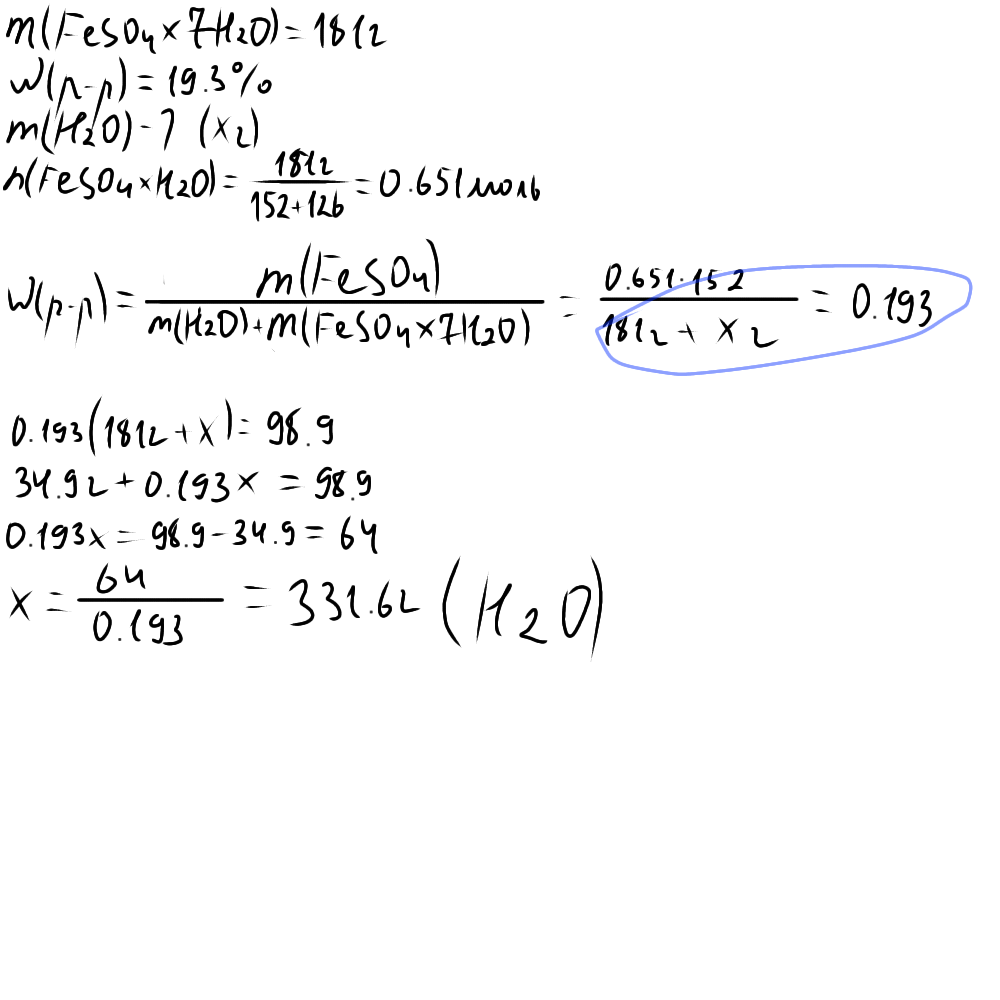 m(FeSO₄×7H₂O)=181г
W(р-р)=19.3%
m(H₂O)-? (xг)
n(FeSO₄×H₂O)= 181г/152+126 =0.651моль
W(р-р)= m(FeSO₄)/m(H₂O)+m(FeSO₄×7H₂O) = 0.651·152/181г+xг = 0.193
0.193(181г+x)=98.9
34.9г+0.193x=98.9
0.193x=98.9-34.9=64
x= 64/0.193 = 331.6г (H₂O)